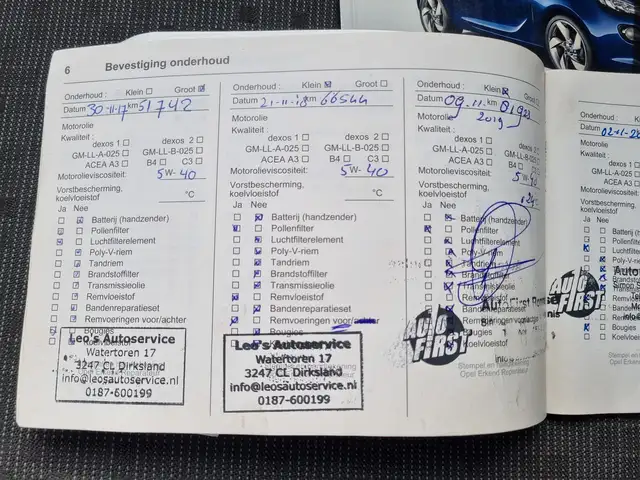 6 Bevestiging onderhoud
Onderhoud : Klein Groot
Datum 30-11-17 km 51742
Motorolie
Kwaliteit :
dexos 1 dexos 2
GM-LL-A-025 GM-LL-B-025
ACEA A3 B4 C3
Motorolieviscositeit: 5W-40
Vorstbescherming,
koelvloeistof °C
Ja Nee
Batterij (handzender)
Pollenfilter
Luchtfilterelement
Poly-V-riem
Tandriem
Brandstoffilter
Transmissieolie
Remvloeistof
Bandenreparatieset
Remvoeringen voor/achter
Bougies
Koelvloeistof
Leo's Autoservice
Watertoren 17
3247 CL Dirksland
info@leosautoservice.nl
0187-600199
Onderhoud : Klein Groot
Datum 21-11-'18 km 66544
Motorolie
Kwaliteit :
dexos 1 dexos 2
GM-LL-A-025 GM-LL-B-025
ACEA A3 B4 C3
Motorolieviscositeit: 5W-40
Vorstbescherming,
koelvloeistof °C
Ja Nee
Batterij (handzender)
Pollenfilter
Luchtfilterelement
Poly-V-riem
Tandriem
Brandstoffilter
Transmissieolie
Remvloeistof
Bandenreparatieset
Remvoeringen voor/achter
Bougies
Leo's Autoservice
Watertoren 17
3247 CL Dirksland
info@leosautoservice.nl
0187-600199
Onderhoud : Klein Groot
Datum 09-11- km
2019
Motorolie
Kwaliteit :
dexos 1 dexos 2
GM-LL-A-025 GM-LL-B-025
ACEA A3 B4 C3
Motorolieviscositeit:
Vorstbescherming,
koelvloeistof
Ja Nee
Batterij (handzender)
Pollenfilter
Luchtfilterelement
Poly-V-riem
Tandriem
Brandstoffilter
Transmissieolie
Remvloeistof
Bandenreparatieset
Remvoeringen voor/achter
Bougies
Koelvloeistof
AUTO
FIRST
Auto First
Stempel en
Opel Erkend Reparateur
Onderhoud
Datum
Motorolie
Kwaliteit :
Motorolieviscos
Vorstbescherm
koelvloeistof
Ja Nee
Batterij
Pollenf
Luchtfi
Poly-V
Tandr
AUTO
FIRST
Koelv
Stempel en
Opel Erken